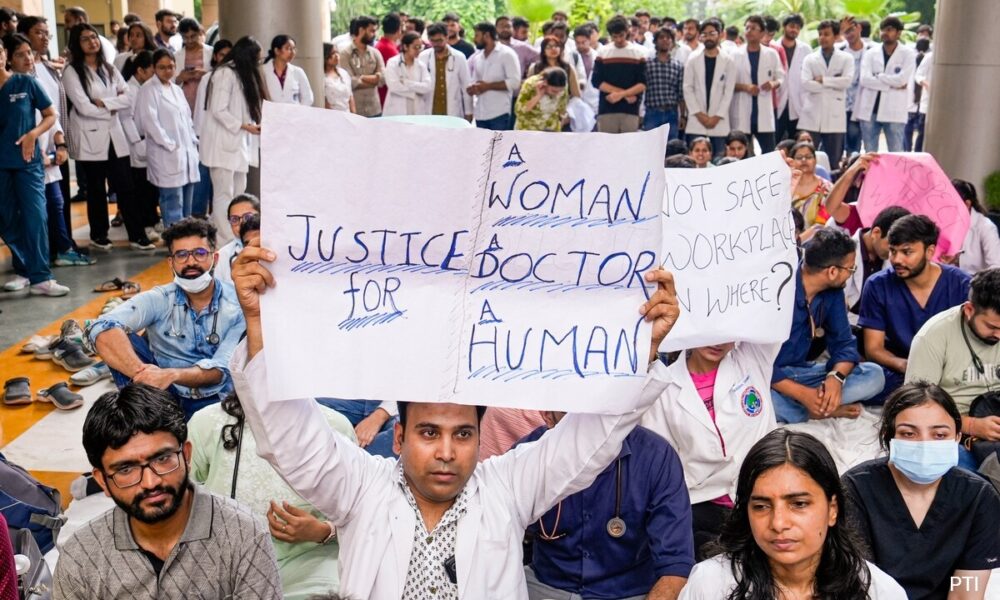 JUSTICE
FOR
A
WOMAN
A
DOCTOR
A
HUMAN
NOT SAFE
WORKPLACE
WHERE?
PTI